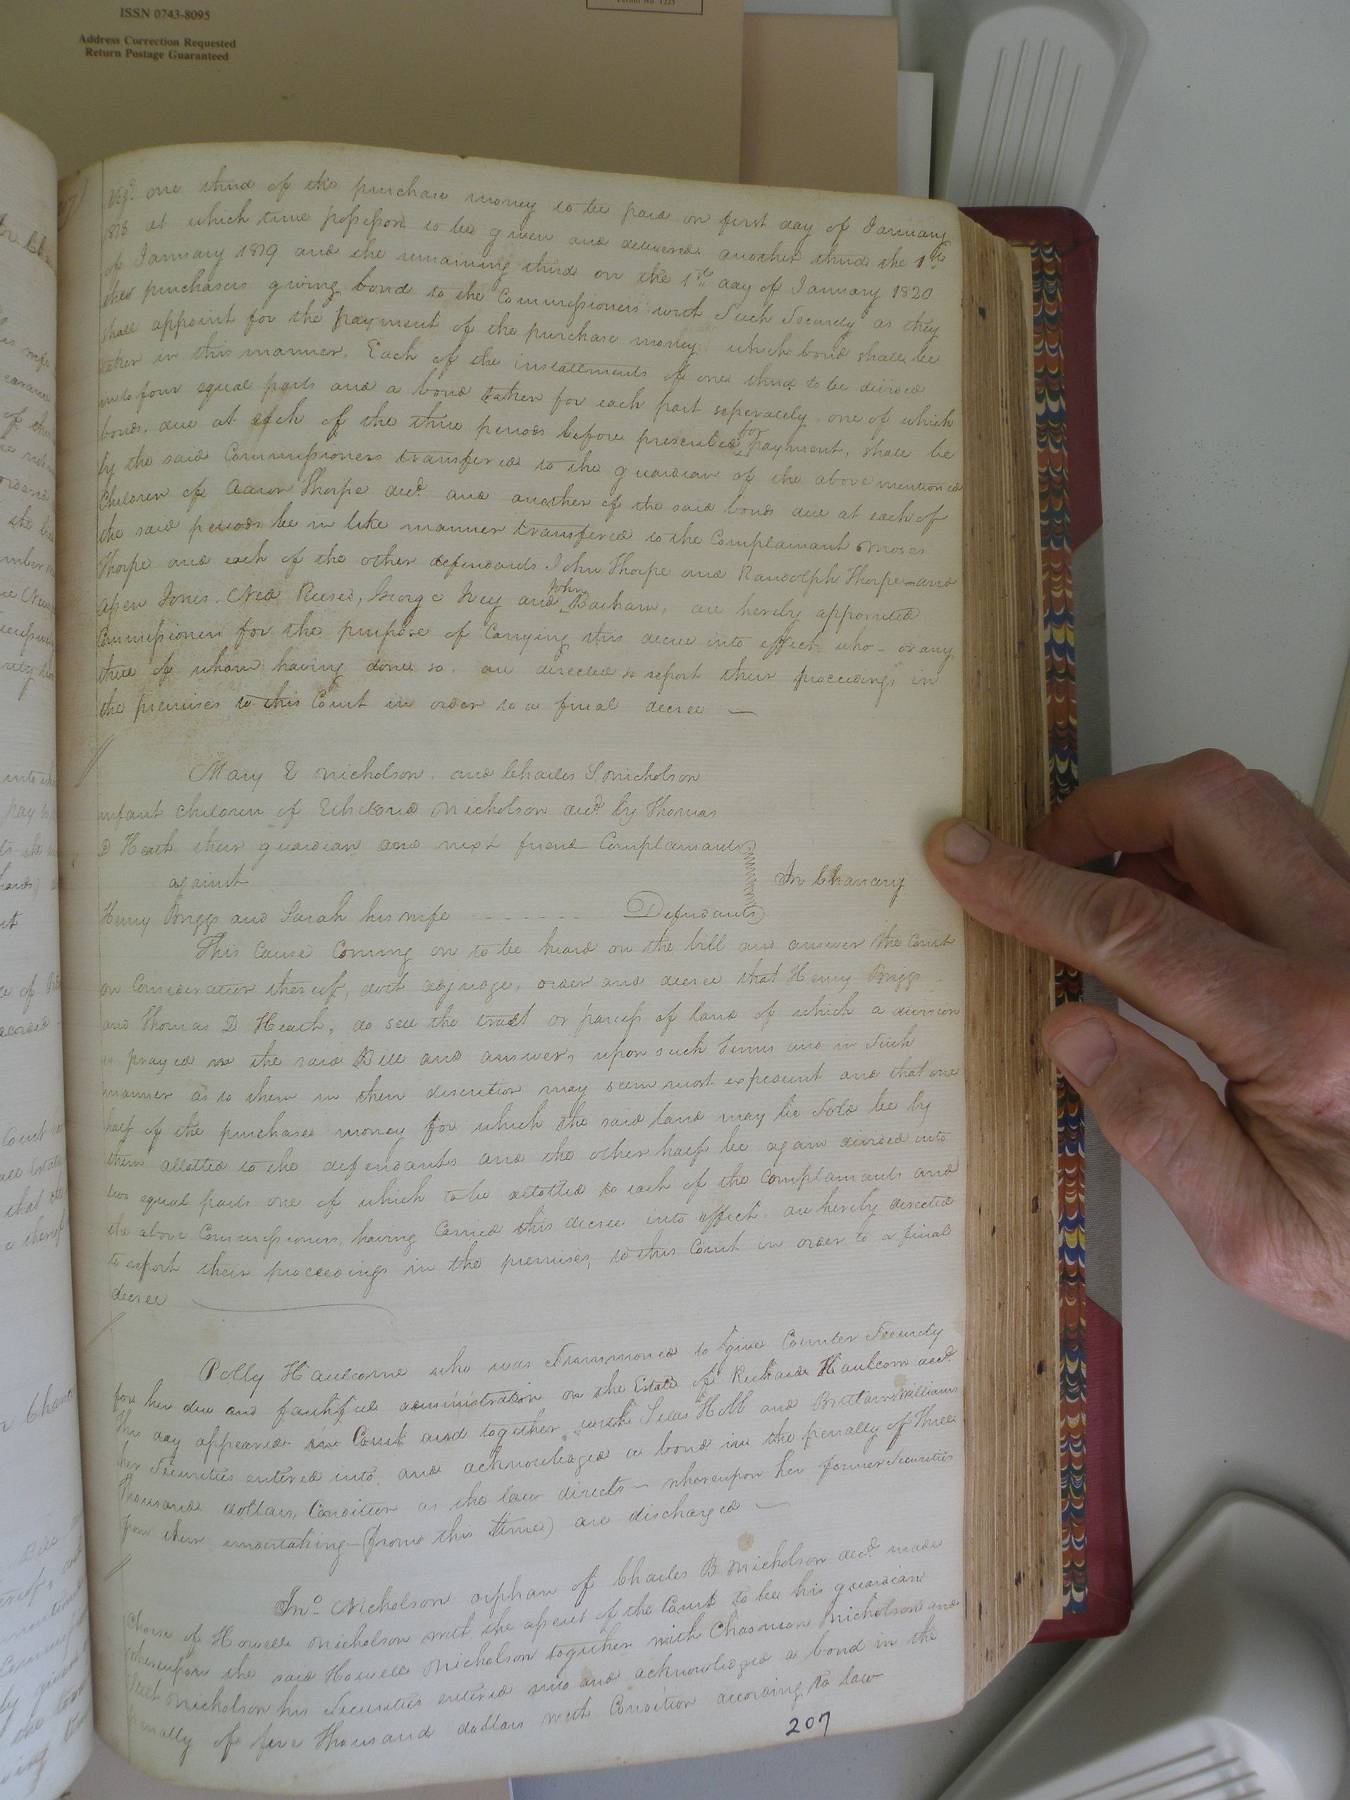 ISSN 0743-8095
Address Correction Requested
Return Postage Guaranteed
Vizt. one third of the purchase money to be paid on first day of January
1818 at which time possession to be given and delivered another third the 1st
of January 1819 and the remaining third on the 1st day of January 1820
the purchasers giving bond to the Commissioners with Such Security as they
shall appoint for the payment of the purchase money which bond shall be
taken in this manner. Each of the instalments of one third to be divided
into four equal parts and a bond taken for each part seperately, one of which
bonds, due at each of the three periods before prescribed for payment, shall be
by the said Commissioners transfered to the guardian of the above mentioned
Children of Aaron Thorpe decd. and another of the said bonds due at each of
the said periods be in like manner transfered to the Complainant Moses
Thorpe and each of the other defendants John Thorpe and Randolph Thorpe and
Jones. Ned Reese, George Ivey and John Barham, are hereby appointed
Commissioners for the purpose of Carrying this decree into effect who - or any
three of whom having done so. are directed to report their proceedings in
the premises to this Court in order to a final decree —
Mary E Nicholson. and Charles S. Nicholson
infant children of Nicholson decd. by Thomas
D Heath their guardian and next friend Complainants
against
In Chancery
Henry Briggs and Sarah his wife - - - - - - - Defendants
This Cause Coming on to be heard on the bill and answer the Court
on Consideration thereof, doth adjudge, order and decree that Henry Briggs
and Thomas D Heath, do sell the tract or parcel of land of which a division
is prayed in the said Bill and answer, upon such Terms and in Such
manner as to them in their discretion may seem most expedient and that one
half of the purchase money for which the said land may be Sold be by
them allotted to the defendants and the other half be again divided into
two equal parts one of which to be allotted to each of the Complainants and
the above Commissioners, having Carried this decree into effect. are hereby directed
to report their proceedings in the premises, to this Court in order to a final
decree
Polly Haulcome who was Summoned to give Counter Security
for her due and faithful administration on the Estate of Richard Haulcom decd.
This day appeared in Court and together with Silas Hill and Brittain Williams
her Securities entered into and acknowledged a bond in the penalty of Three
Thousand dollars, Condition as the law directs — whereupon her former Securities
from their undertaking — (from this time) are discharged —
Jno. Nicholson orphan of Charles B Nicholson decd. made
Choice of Howell Nicholson with the assent of the Court to be his guardian
whereupon the said Howell Nicholson together with Nicholson and
Nicholson his Securities entered into and acknowledged a bond in the
penalty of five Thousand dollars with Condition according to law
207